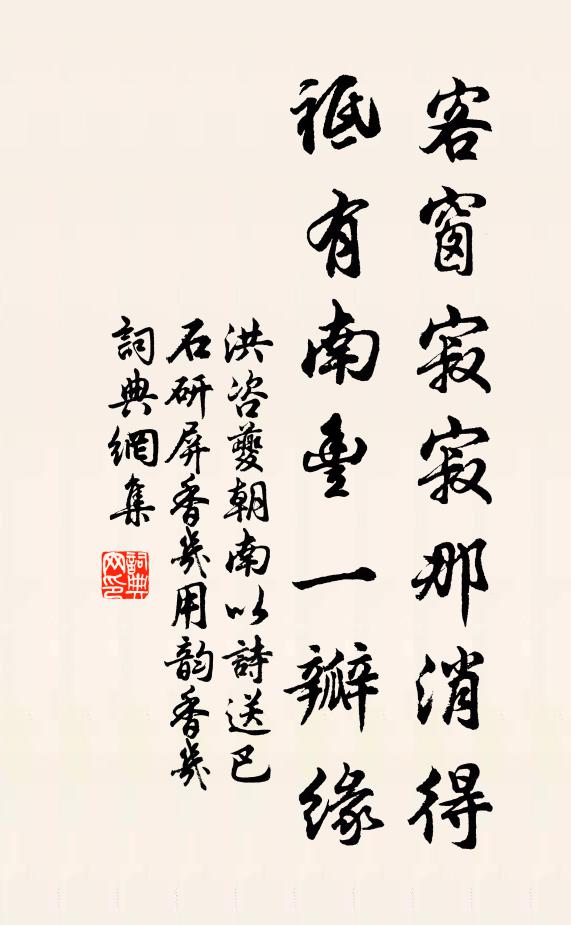 客窗寂寂那消得
祗有南豐一瓣緣
洪咨夔朝南以詩送巴
石研屏香㡬用韵香㡬
詞典網集
詞典
网印